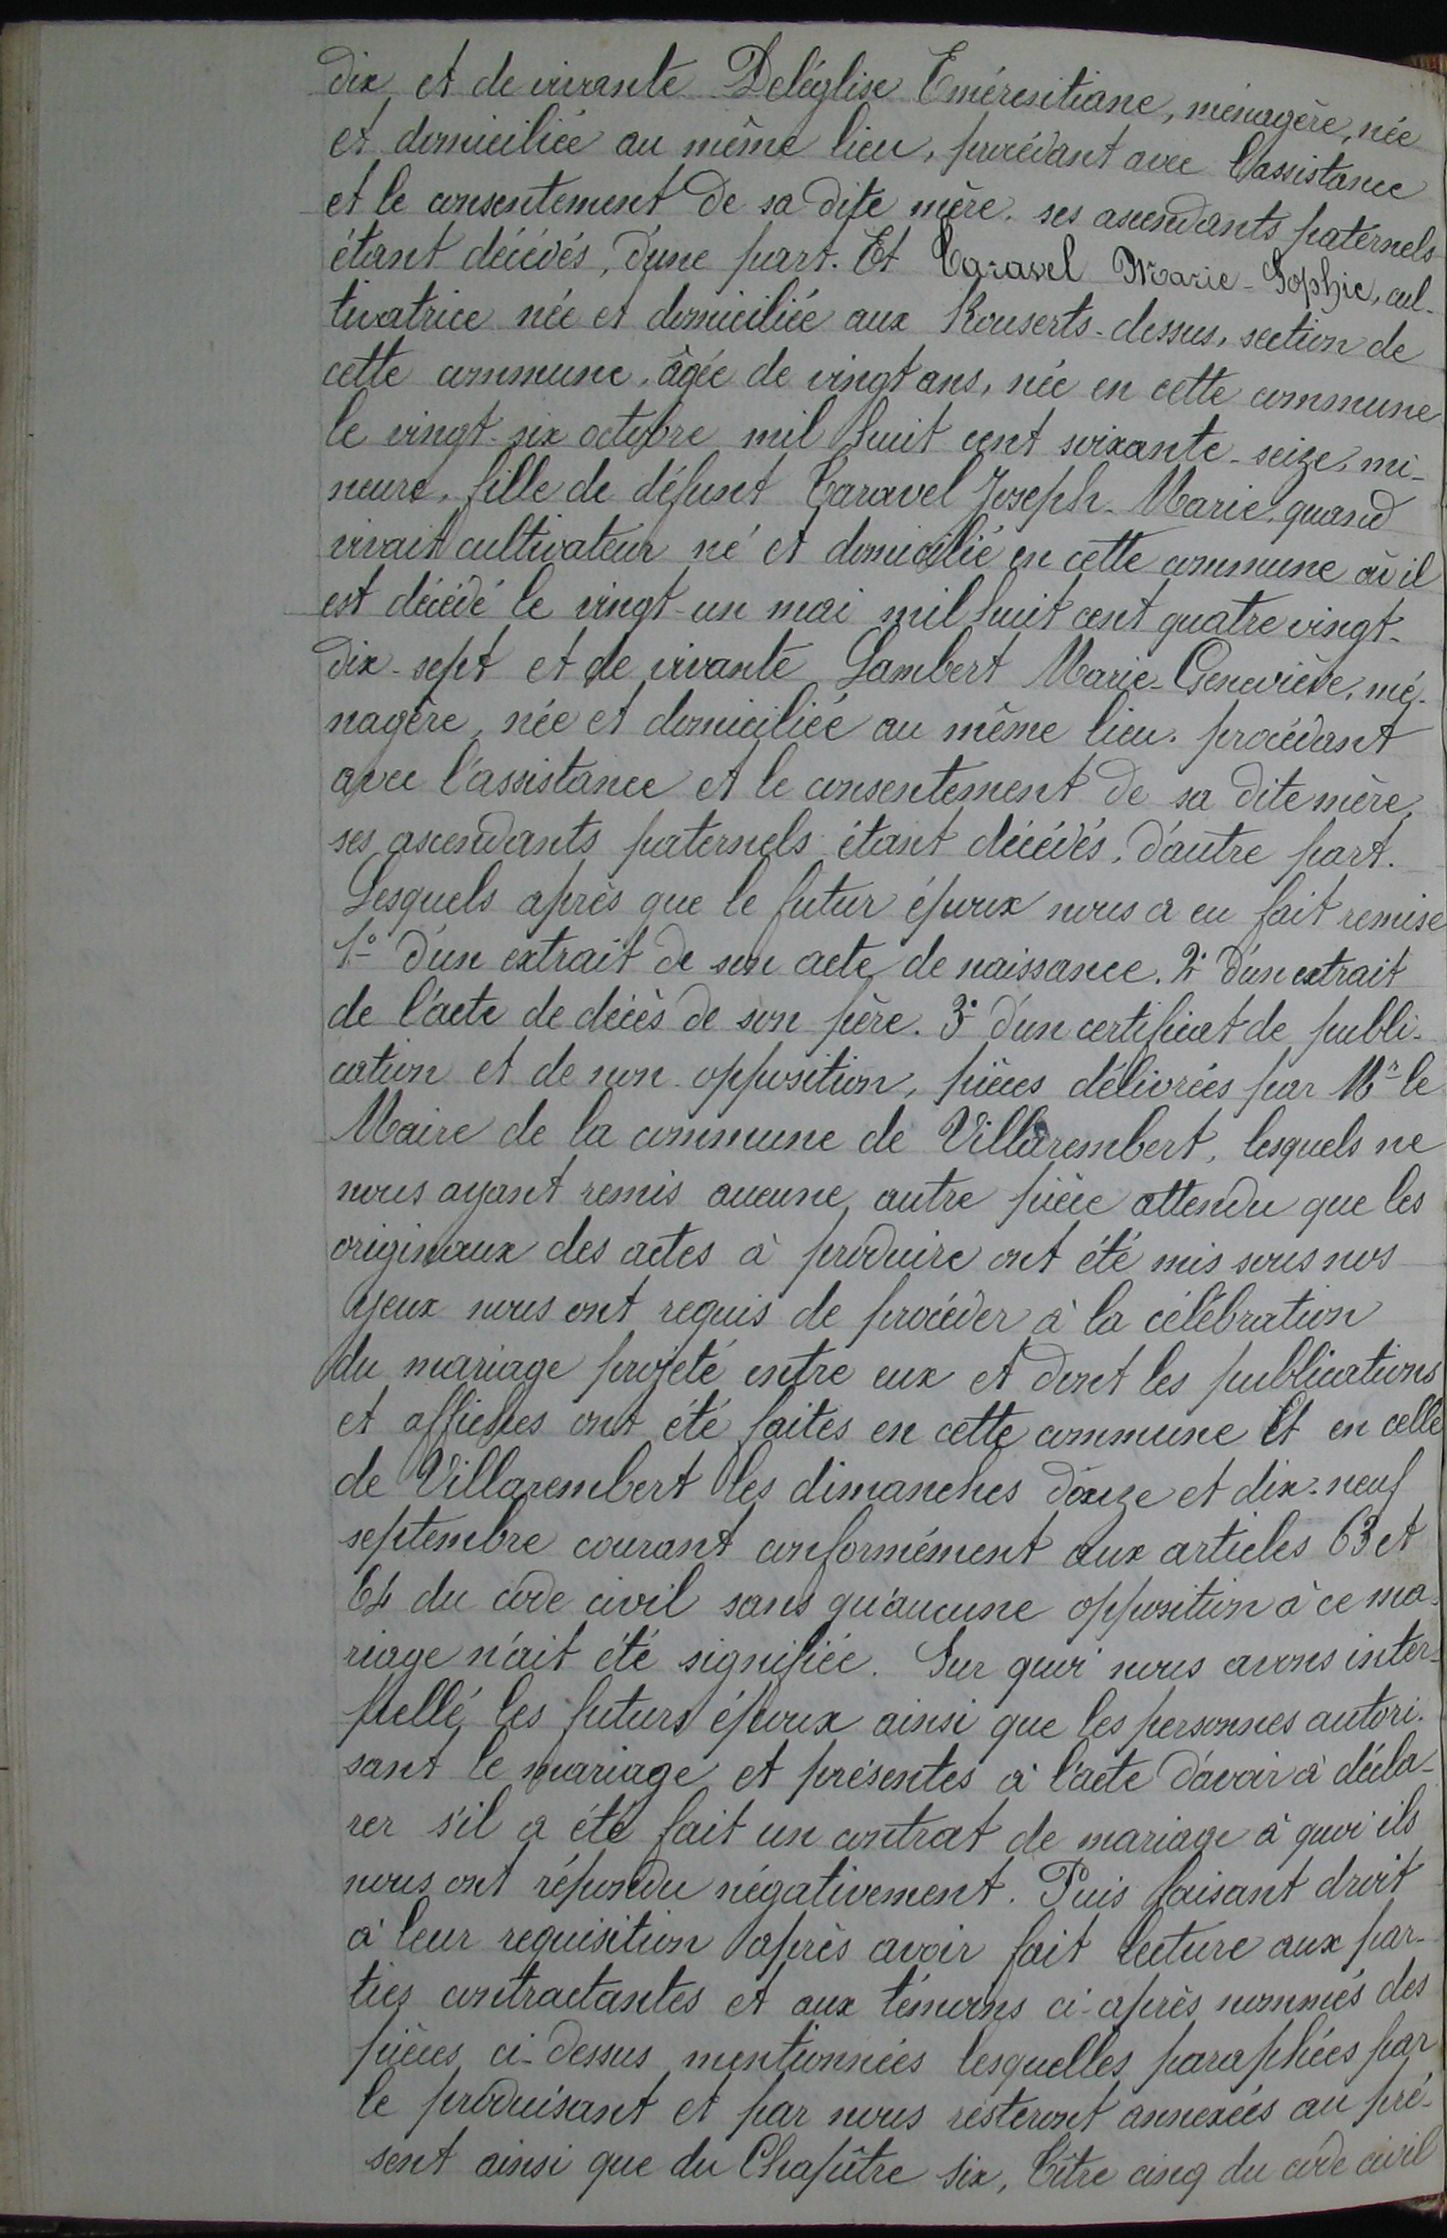 dix et de vivante Deléglise Emérentiane, ménagère, née
et domiciliée au même lieu, procédant avec l'assistance
et le consentement de sa dite mère, ses ascendants paternels
étant décédés, d'une part. Et Caravel Marie-Sophie, cul-
tivatrice née et domiciliée aux Rouserts-dessus, section de
cette commune, âgée de vingt ans, née en cette commune
le vingt-six octobre mil huit cent soixante-seize, mi-
neure, fille de défunt Caravel Joseph-Marie, quand
vivait cultivateur né et domicilié en cette commune où il
est décédé le vingt-un mai mil huit cent quatre vingt-
dix-sept et de vivante Lambert Marie-Geneviève, mé-
nagère, née et domiciliée au même lieu, procédant
avec l'assistance et le consentement de sa dite mère,
ses ascendants paternels étant décédés, d'autre part.
Lesquels après que le futur époux nous a eu fait remise
1° d'un extrait de son acte de naissance. 2° d'un extrait
de l'acte de décès de son père. 3° d'un certificat de publi-
cation et de non opposition, pièces délivrées par Mr le
Maire de la commune de Villarembert, lesquels ne
nous ayant remis aucune autre pièce attendu que les
originaux des actes à produire ont été mis sous nos
yeux nous ont requis de procéder à la célébration
du mariage projeté entre eux et dont les publications
et affiches ont été faites en cette commune et en celle
de Villarembert les dimanches douze et dix-neuf
septembre courant conformément aux articles 63 et
64 du code civil sans qu'aucune opposition à ce ma-
riage n'ait été signifiée. Sur quoi nous avons inter-
pellé les futurs époux ainsi que les personnes autori-
sant le mariage et présentes à l'acte d'avoir à décla-
rer s'il a été fait un contrat de mariage à quoi ils
nous ont répondu négativement. Puis faisant droit
à leur requisition après avoir fait lecture aux par-
ties contractantes et aux témoins ci-après nommés des
pièces ci-dessus mentionnées lesquelles paraphées par
le produisant et par nous resteront annexées au pré-
sent ainsi que du Chapître six, Titre cinq du code civil